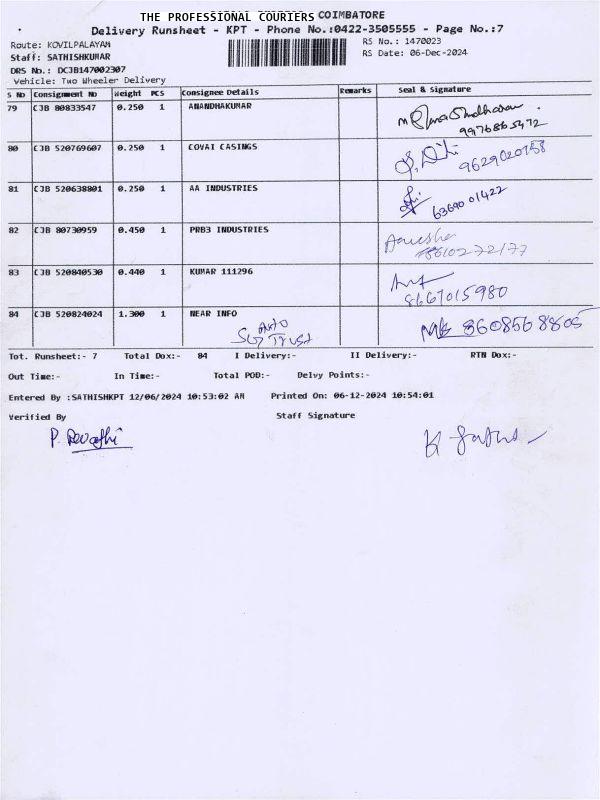 THE PROFESSIONAL COURIERS COIMBATORE
Delivery Runsheet - KPT - Phone No.:0422-3505555 - Page No.:7
Route: KOVILPALAYAM
RS No.: 1470023
Staff: SATHISHKUMAR
RS Date: 06-Dec-2024
DRS No.: DCJB147002307
Vehicle: Two Wheeler Delivery
S No Consignment No Weight PCS Consignee Details Remarks Seal & Signature
79 CJB 80833547 0.250 1 ANANDHAKUMAR
80 CJB 520769607 0.250 1 COVAI CASINGS 9629020758
81 CJB 520638801 0.250 1 AA INDUSTRIES 6369001422
82 CJB 80730959 0.450 1 PRB3 INDUSTRIES
83 CJB 520840530 0.440 1 KUMAR 111296
8667015980
84 CJB 520824024 1.300 1 NEAR INFO 8608568805
Auto
Trust
Tot. Runsheet:- 7 Total Dox:- 84 I Delivery:- II Delivery:- RTN Dox:-
Out Time:- In Time:- Total POD:- Delvy Points:-
Entered By :SATHISHKPT 12/06/2024 10:53:02 AM Printed On: 06-12-2024 10:54:01
Verified By Staff Signature
P. Revathi